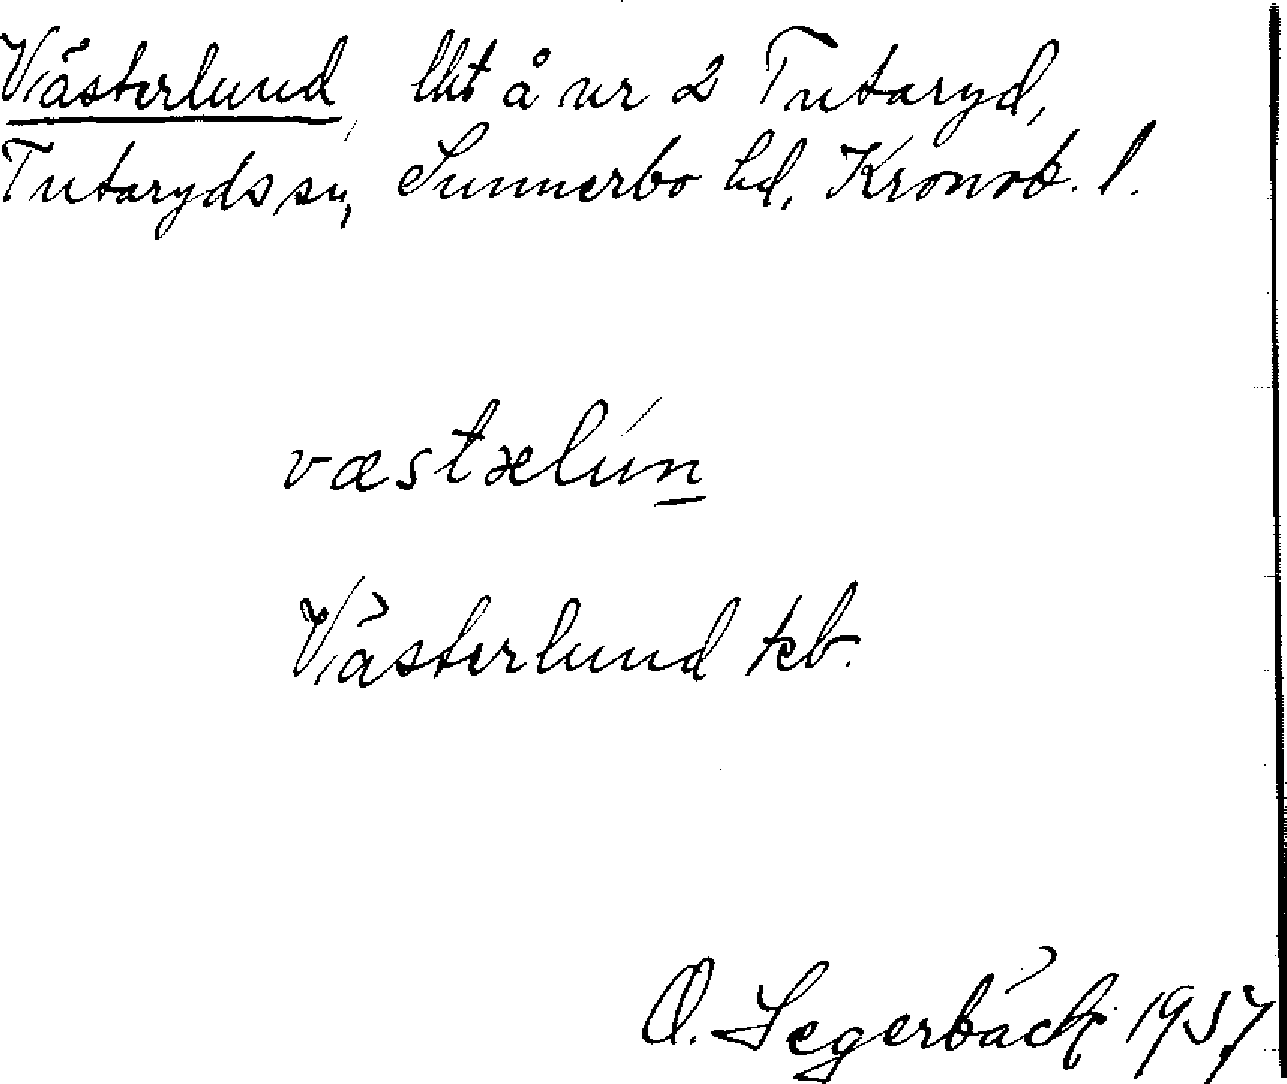 Västerlund, lht å nr 2 Tutaryd,
Tutaryds sn, Sunnerbo hd, Kronob. l.
væstælún
Västerlund kb.
O. Segerbäck 1957